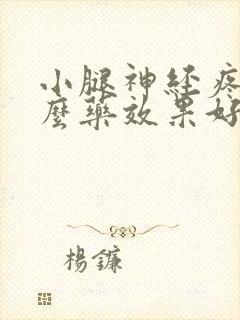 小腿神经疼
麼藥效果好
楊鐮